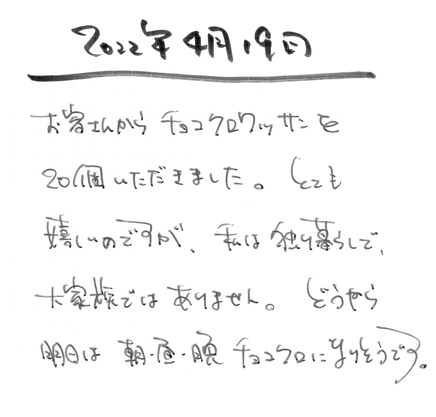 2022年4月19日
お客さんから チョコクロワッサンを
20個いただきました。とても
嬉しいのですが、私は独り暮らしで、
大家族ではありません。どうやら
明日は 朝・昼・晩 チョコクロになりそうです。